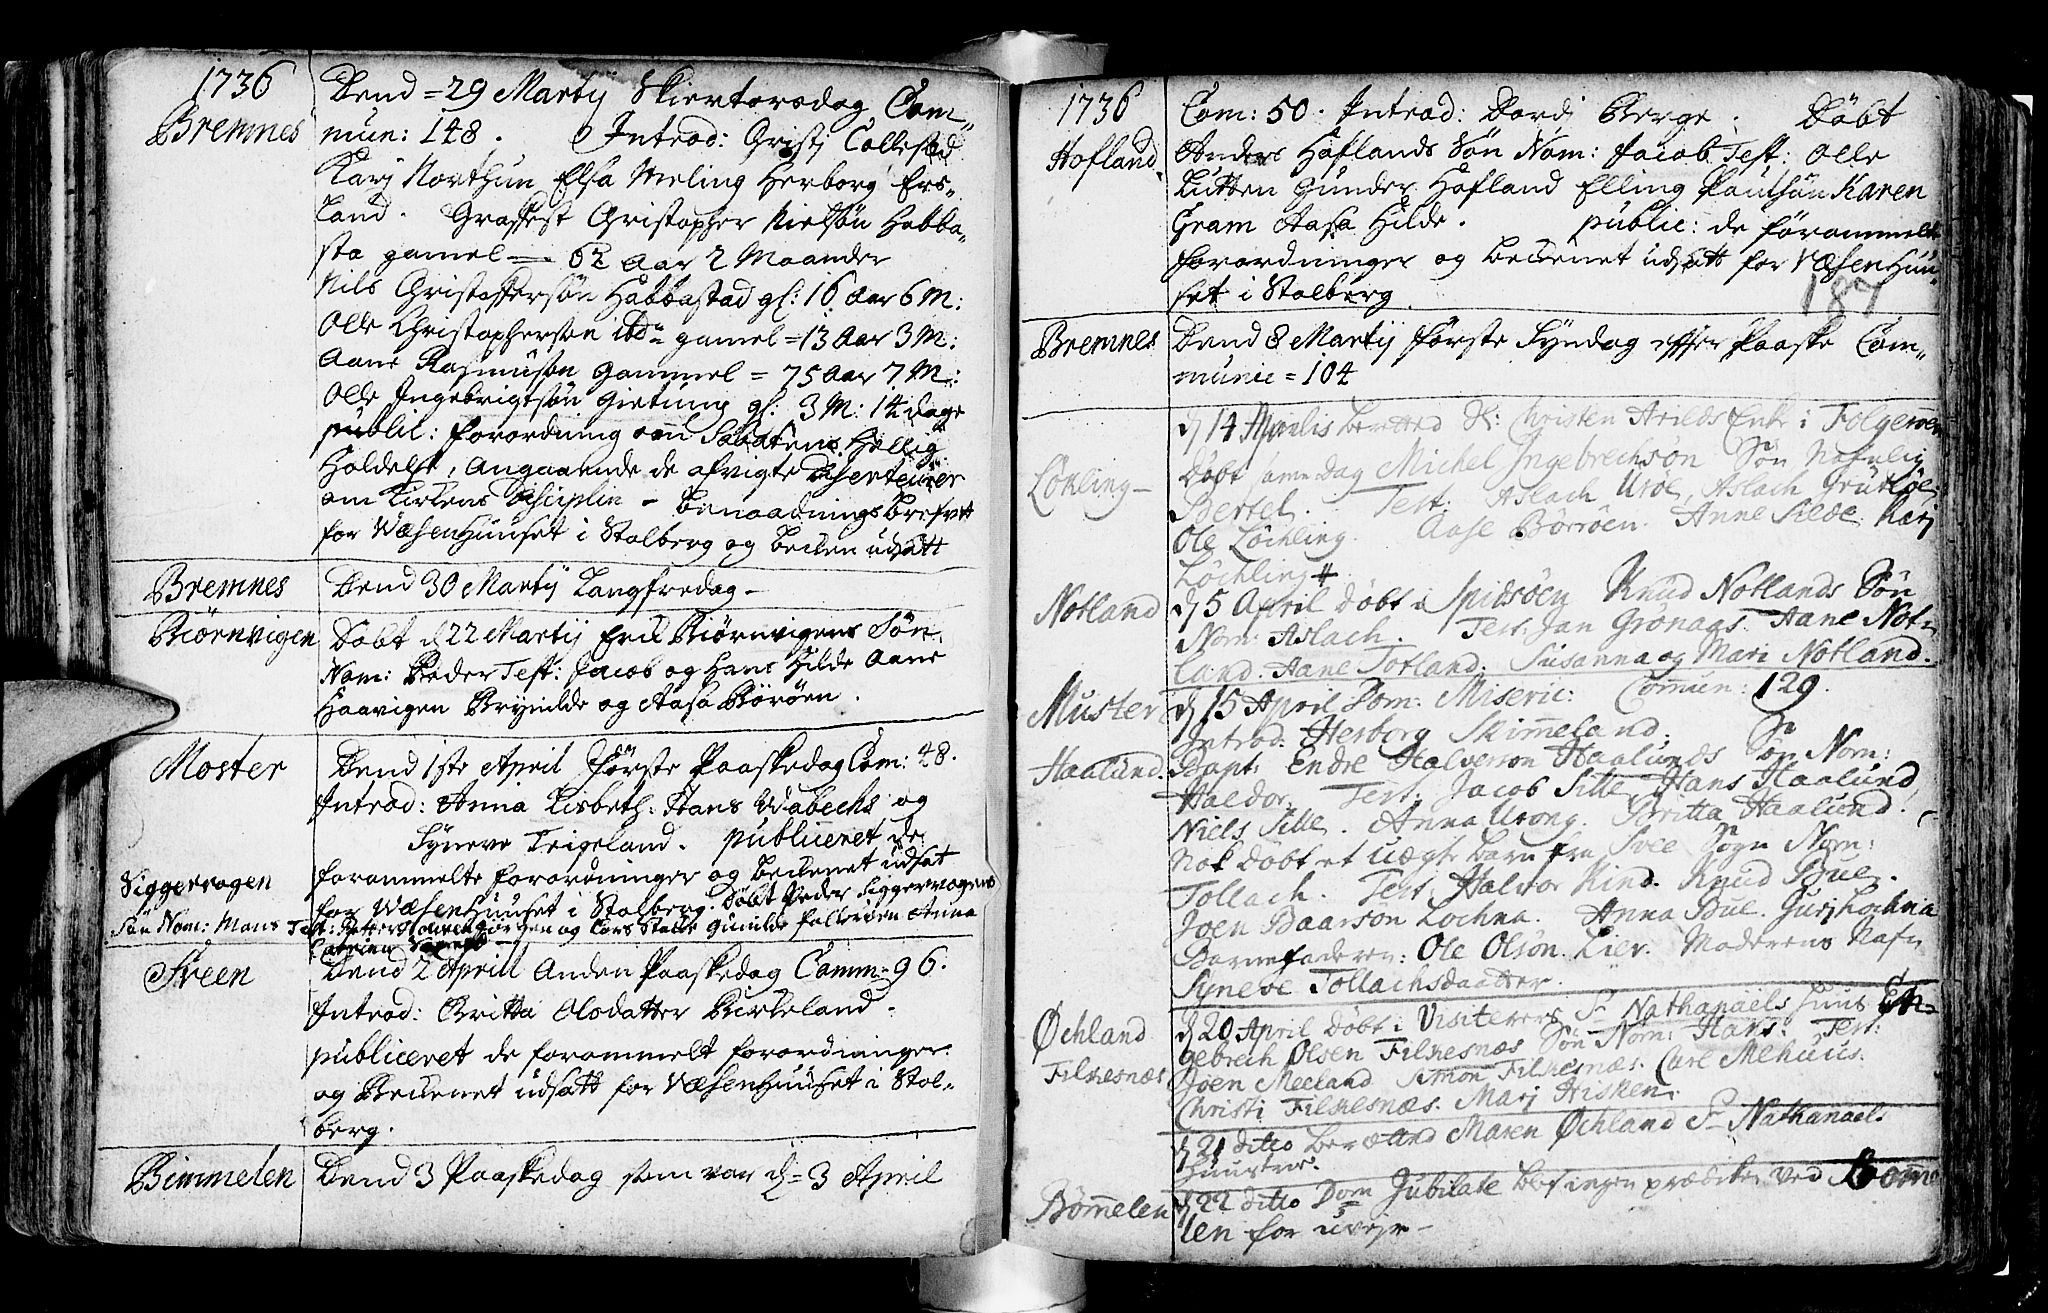 1736
Bremnes
Dend = 29 Martij Skiertorsdag Com„
mun: 148. Introd: Christj Collestad
Karj Northun Elsa Meling Herborg Ers„
land. Grafest Christopher Nielsøn Habba„
sta gamel — 62 Aar 2 Maander
Nils Christoffersøn Habbastad gl: 16 Aar 6 M:
Olle Christophersøn ibd: gamel = 13 Aar 3 M:
Aane Rasmusøn gammel = 75 Aar 7 M:
Olle Ingebrigtsøn Gietung gl: 3 M: 14 dage
publi: forordning om Sabatens Hellig
Holdelse, Angaaende de afvigte Deserteurer
om Kirkens Disciplin – Benaadnings Brefvet
for Wæsenhuuset i Stolberg og Becken udsatt
Bremnes
Dend 30 Martij Langfredag –
Biørnvigen
Døbt d 22 Martij Erik Biørnvigens Søn
Nom: Peder Test: Jacob og Hans Hilde Aane
Haavigen Brynilde og Aasa Børøen.
Moster
Dend 1ste April Første Paaskedag Com: 48.
Introd: Anna Lisbeth: Hans Wabechs og
Syneve Teigeland. publiceret de
forommelte forordninger og Beckenet udsat
Siggervogen
for Wæsenhuuset i Stolberg. Døbt Peder Siggervogens
Søn Nom: Mans Test: Gorgen og Lars Stalle Gunilde Folleröen Anna
Sveen
Dend 2 Aprill Anden Paaskedag Comm: 96.
Introd: Britta Olsdatter Birkeland.
publiceret de forommelt forordninger
og Beckenet udsatt for Wæsenhuuset i Stol„
berg.
Bimmelen
Dend 3 Paaskedag som var d = 3 April
1736
Com: 50. Introd: Dordi Berge. Døbt
Hofland
Anders Hoflands Søn Nom: Jacob Test: Olle
Lutken Gunder Hofland Elling Poulsøn Karen
Gram Aasa Hilde. public: de forommelte
forordninger og Beckenet udsatt for Wæsenhuu„
set i Stolberg.
187
Bremnes
Dend 8 Martij Første Syndag effter Paaske Com„
munic = 104
d 14 Aprilis beretted Christen Arilds Enke i Folgerøen
Løkling –
Døbt samme Dag Michel Ingebrechsøn Søn Nafnlig
Bertel. Test: Aslach Urøe, Aslach Grutle
Ole Løchling. Aase Børrøen. Anne Silde. Karj
Løchling
Notland
d 5 April døbt i Spidsøen Knud Notlands Søn
Nom: Aslach. Test: Jan Grønaas. Aane Not„
land. Aane Totland. Susanna og Mari Notland.
Muster
d 15 April Dom: Miseric: Commun: 129.
Introd. Herborg Skimmeland.
Haalund.
Bapt: Endre Halverson Haalunds Søn Nom:
Haldor. Test: Jacob Sille Hans Haalund
Niels Sille. Anna Urong. Britta Haalund.
Nok døbt et uægte barn fra Svee Sogn Nom:
Tollach. Test: Halvor Kind. Knud Bue.
Joen Baarson Lochna. Anna Bue. Gurj Lochna
Barnefaderen: Ole Olsøn Lier. Moderens Nafn
Syneve Tollachsdaatter.
Øchland
d 20 April døbt i Visiterers Sr Nathanaels huus En„
gebrech Olsen Filknesnæs Søn Nom: Hans. Test:
Filknesnæs
Joen Meeland Simon Filknesnæs. Carl Mehuus.
Christi Filknesnæs. Marj Hisken.
d 21 ditto Berættet Maren Øchland Sr Nathanaels
Huustrue.
Bømmelen
d 22 ditto Dom Jubilate blef ingen prædiken ved Bøm„
len for uvejr –